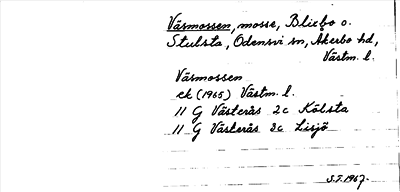 Väsmossen, mosse, Blixbo o.
Stulsta, Odensvi sn, Åkerbo hd,
Västm. l.
Väsmossen
ek (1965) Västm. l.
11 G Västerås 2c Kölsta
11 G Västerås 3c Lisjö
S.I. 1967.